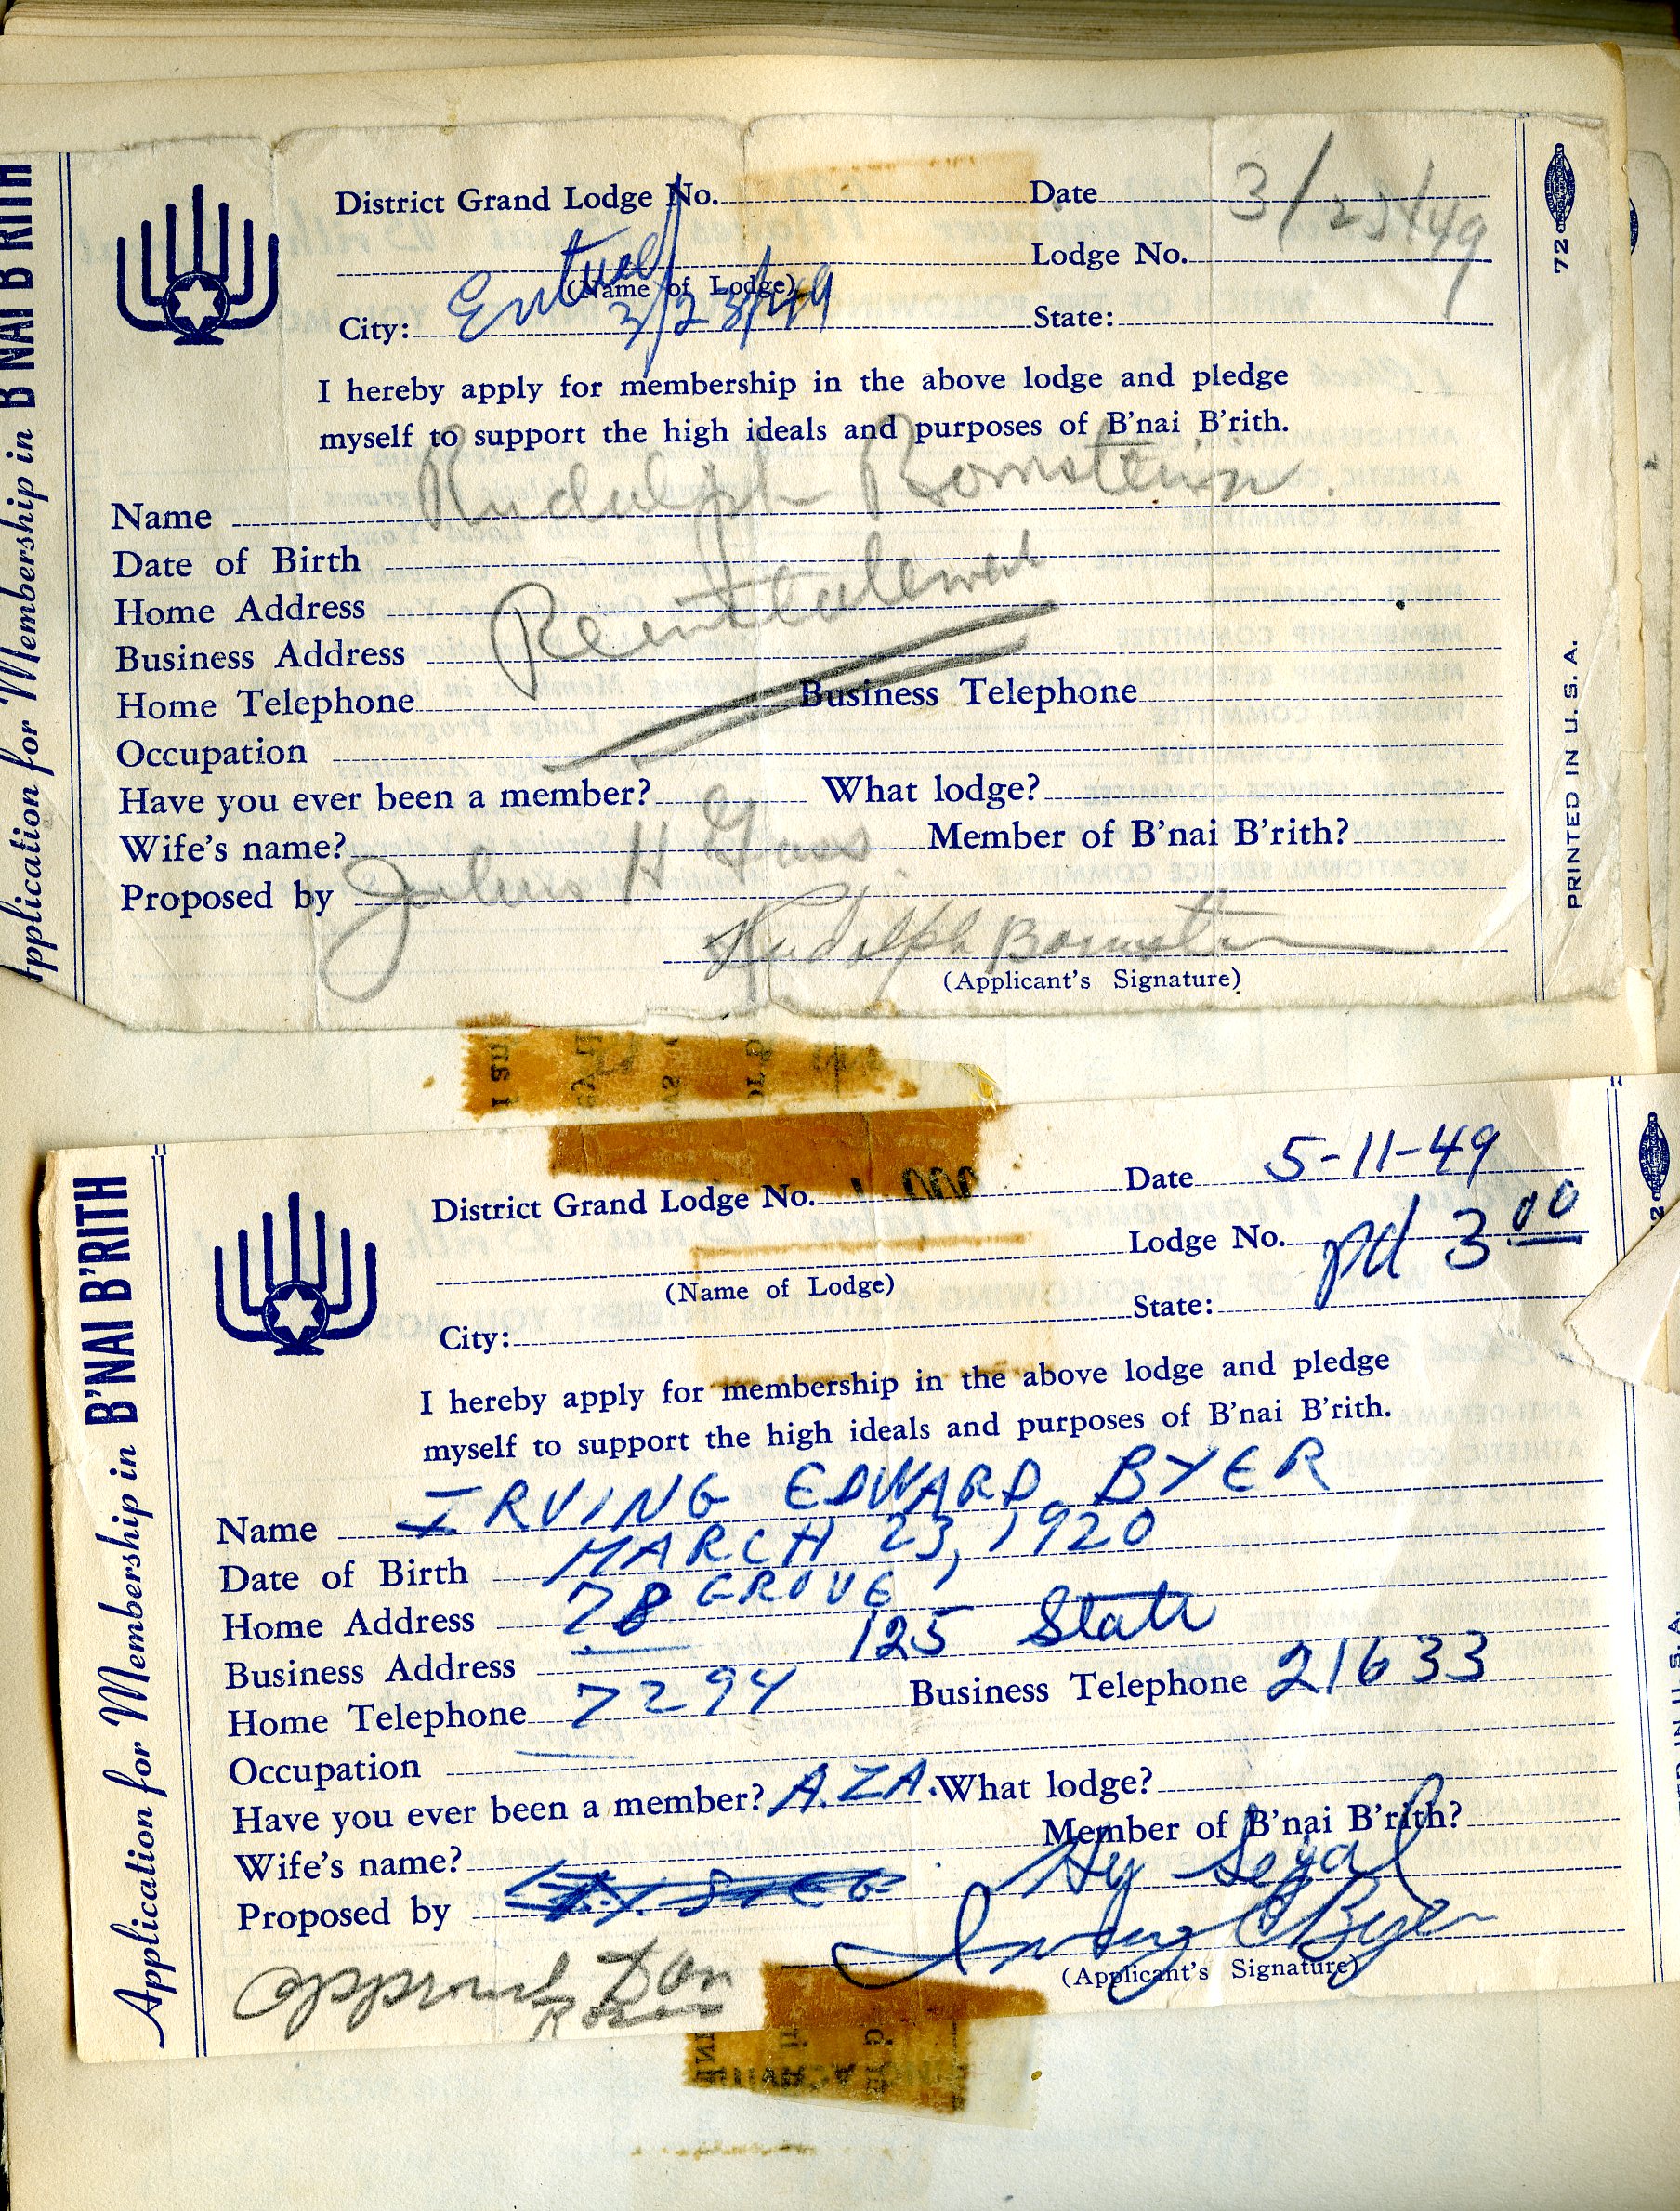 Application for Membership in B'NAI B'RITH
District Grand Lodge No. Date 3/23/49
(Name of Lodge) Lodge No.
City: 3/23/49 State:
I hereby apply for membership in the above lodge and pledge
myself to support the high ideals and purposes of B'nai B'rith.
Name Rudolph Bornstein
Date of Birth
Home Address
Business Address
Home Telephone Business Telephone
Occupation
Have you ever been a member? What lodge?
Wife's name? Member of B'nai B'rith?
Proposed by Julius H
Rudolph Bornstein
(Applicant's Signature)
72
PRINTED IN U. S. A.
Application for Membership in B'NAI B'RITH
District Grand Lodge No. Date 5-11-49
Lodge No. pd 3 00
(Name of Lodge)
City: State:
I hereby apply for membership in the above lodge and pledge
myself to support the high ideals and purposes of B'nai B'rith.
Name IRVING EDWARD BYER
Date of Birth MARCH 23, 1920
Home Address 78 GROVE
Business Address 125 State
Home Telephone 7294 Business Telephone 21633
Occupation
Have you ever been a member? A.Z.A. What lodge?
Wife's name? Member of B'nai B'rith?
Proposed by Hy Segal
Irving E Byer
(Applicant's Signature)
approved Dan
Rosen